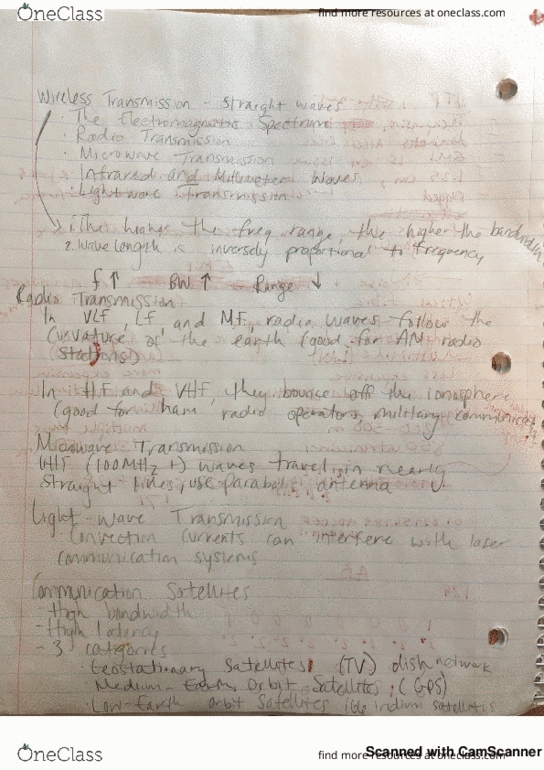 OneClass
find more resources at oneclass.com
Wireless Transmission - straight waves
· The Electromagnetic Spectrum
· Radio Transmission
· Microwave Transmission
· Infrared and Millimeter Waves
· Light wave Transmission
1. The higher the freq range, the higher the bandwidth
2. Wave length is inversely proportional to frequency
f ↑ BW ↑ Range ↓
Radio Transmission
In VLF, LF and MF radio waves follow the
curvature of the earth (good for AM radio
stations)
In HF and VHF, they bounce off the ionosphere
(good for ham radio operators, military
Microwave Transmission
(100MHz +) waves travel in nearly
straight lines, use antenna
Light wave Transmission
Convection currents can interfere with laser
communication systems
Communication Satellites
- High bandwidth
- High latency
- 3 categories
· Geostationary Satellites (TV) dish network
· Medium-Earth Orbit Satellites, (GPS)
· Low-Earth orbit Satellites
OneClass
find more resources at oneclass.com
Scanned with CamScanner